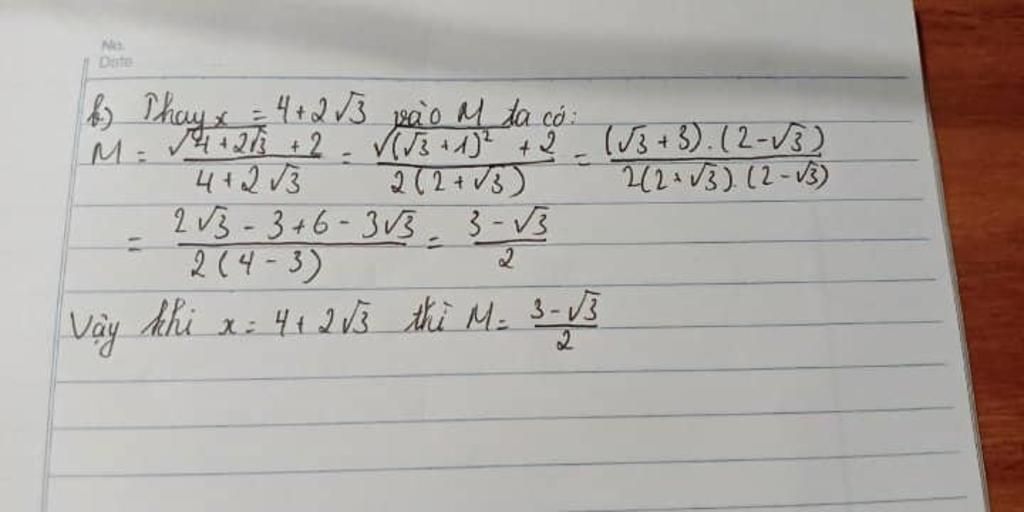 No.
Date
b) Thay x = 4 + 2√3 vào M ta có:
M = (√(4 + 2√3) + 2) / (4 + 2√3) = (√((√3 + 1)²) + 2) / (2(2 + √3)) = ((√3 + 3).(2 - √3)) / (2(2 + √3).(2 - √3))
= (2√3 - 3 + 6 - 3√3) / (2(4 - 3)) = (3 - √3) / 2
Vậy khi x = 4 + 2√3 thì M = (3 - √3) / 2